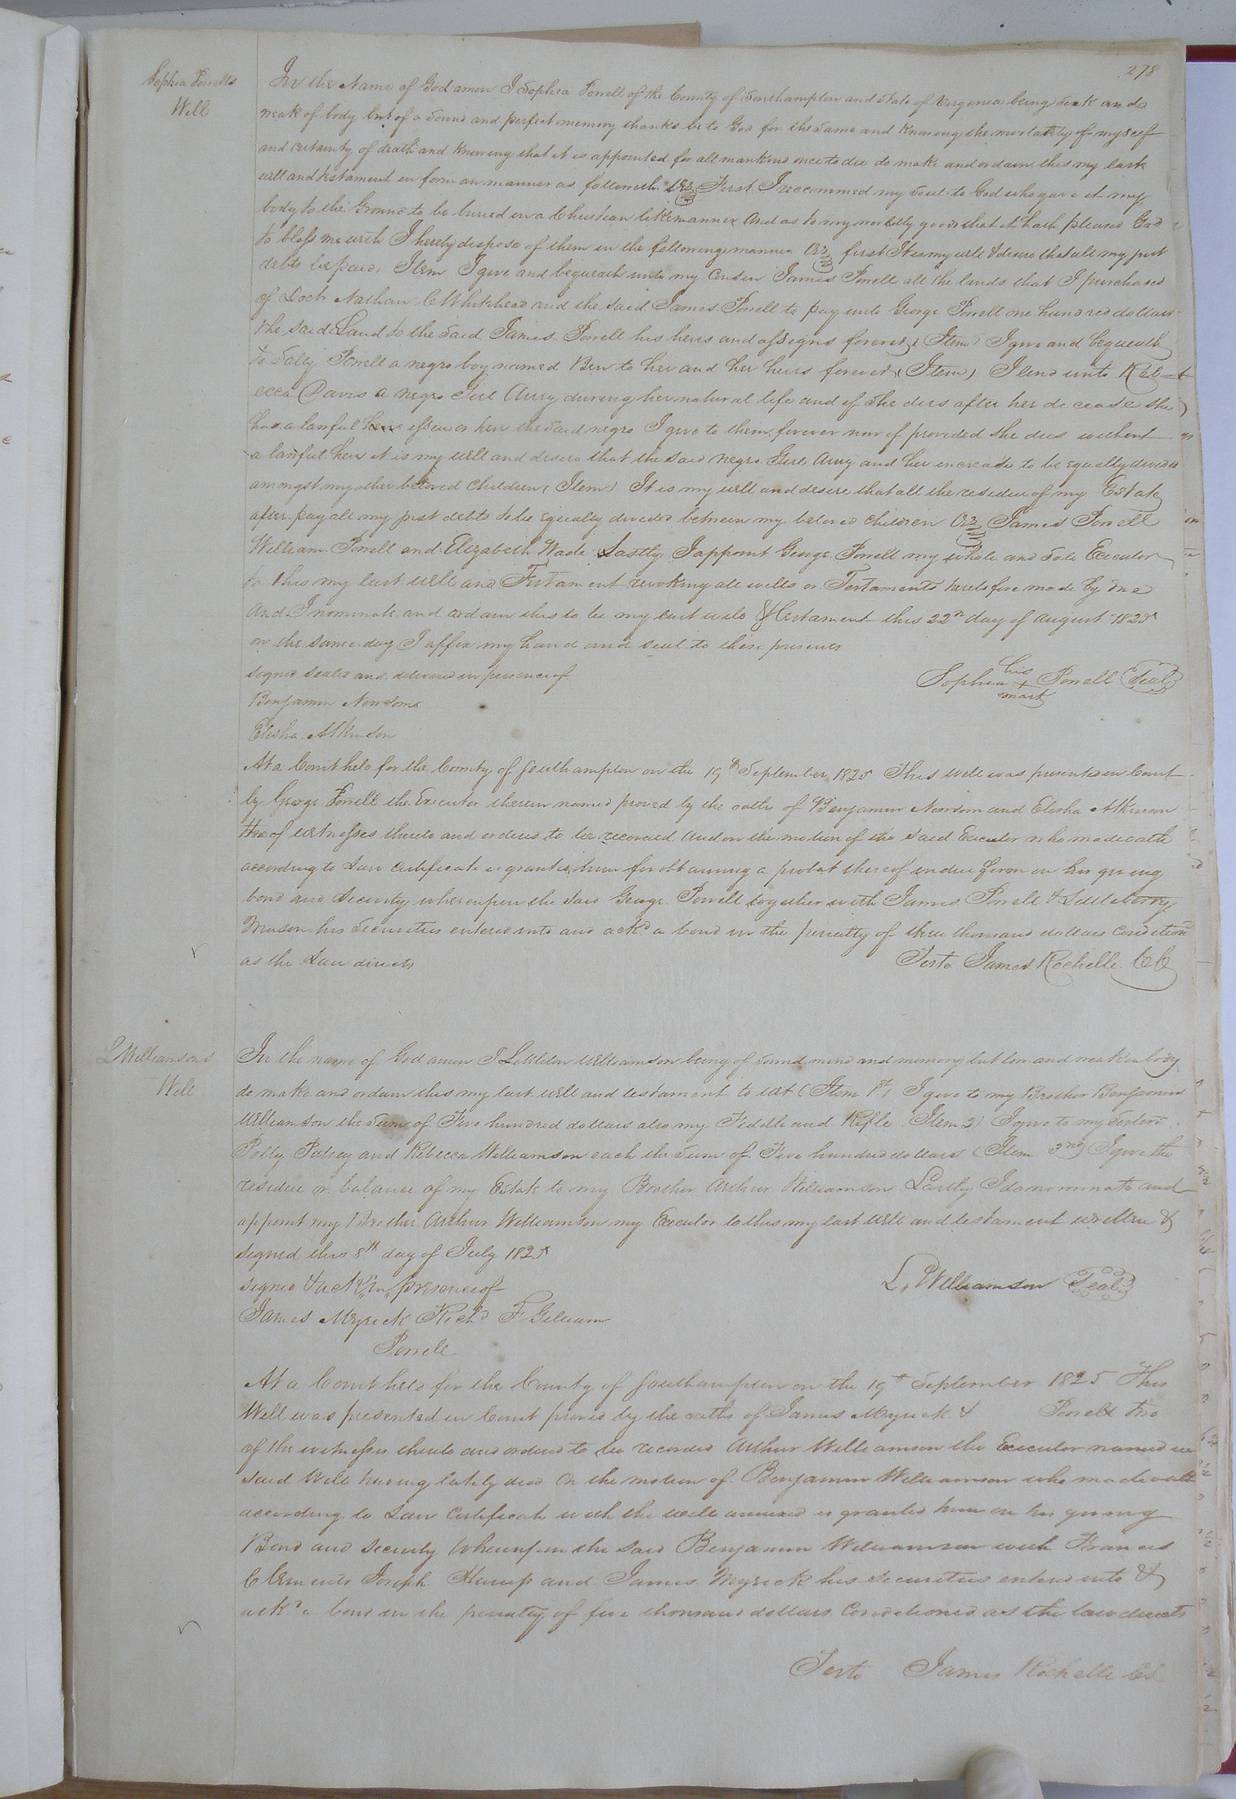 278
Sophia Powells
Will
In the Name of God amen I Sophia Powell of the County of Southampton and State of Virginia being Seak and
weak of body but of a Sound and perfect memory thanks be to God for the Same and knowing the mortality of myself
and certainty of death and knowing that it is appointed for all mankind once to die do make and ordain this my last
will and testament in form an manner as followeth Viz First I recommed my Soul to God who gave it my
body to the Ground to be buried in a Christian like manner And as to my worldly goods that it hath pleased God
to bless me with I hereby dispose of them in the following manner Viz first It is my will & desire that all my just
debts be paid. Item I give and bequeath unto my Cusen James Powell all the lands that I purchased
of Doctr Nathan C Whitehead and the said James Powell to pay unto George Powell one hundred dollars
the said Land to the Said James Powell his heirs and assigns forever (Item) I give and bequeath
to Sally Powell a negro boy named Ben to her and her heirs forever (Item) I lend unto Reb-
ecca Davis a negro Girl Amy during her natural life and if She dies after her decease She
has a lawful issue or heir the Said negro I give to them forever now if provided She dies without
a lawful heir it is my will and desire that the said negro Girl Amy and her increase to be equally divided
amongst my other beloved children (Item) It is my will and desire that all the residue of my Estate
after pay all my just debts to be Equally divided between my beloved children Viz James Powell
William Powell and Elizabeth Wade Lastly I appoint George Powell my whole and Sole Executor
to this my last will and Testament revoking all wills or Testaments heretofore made by me
And I nominate and ordain this to be my last will & testament this 22nd day of August 1825
on the same day I affix my hand and seal to these presents
Signed Sealed and delivered in presence of
Sophia his + mark Powell Seal
Benjamin Newsom
Elisha Atkinson
At a Court held for the County of Southampton on the 19th September 1825 This will was presented in Court
by George Powell the Executor therein named proved by the oaths of Benjamin Newsom and Elisha Atkinson
two of witnesses thereto and ordered to be recorded And on the motion of the Said Executor who made oath
according to Law certificate is granted him for obtaining a probat thereof in due form on his giving
bond and Security whereupon the Said George Powell together with James Powell & Littleberry
Mason his Securities entered into and ackd a bond in the penalty of three thousand dollars Conditioned
as the Law directs
Teste James Rochelle CC
L Williamson's
Will
In the name of God amen I Littleton Williamson being of Sound mind and memory but low and weak in body
do make and ordain this my last will and testament to wit (Item 1st) I give to my Brother Benjamin
Williamson the Sum of Five hundred dollars also my Fiddle and Rifle (Item 2) I give to my Sisters
Polly Patsey and Rebecca Williamson each the Sum of Five hundred dollars (Item 3rd) I give the
residue or balance of my Estate to my Brother Arthur Williamson Lastly I do nominate and
appoint my Brother Arthur Williamson my Executor to this my last will and testament written &
signed this 8th day of July 1825
Signed & ackd in presence of
L. Williamson Seal
James Myrick Richd F Gilliam
Powell
At a Court held for the County of Southampton on the 19th September 1825 This
Will was presented in Court proved by the oaths of James Myrick & Powell two
of the witnesses thereto and ordered to be recorded Arthur Williamson the Executor named in
said Will having lately died On the motion of Benjamin Williamson who made oath
according to Law Certificate with the will annexed is granted him on his giving
Bond and Security Whereupon the Said Benjamin Williamson with Francis
Clements Joseph and James Myrick his Securities entered into &
ackd a bond in the penalty of five thousand dollars Conditioned as the law directs
Teste James Rochelle